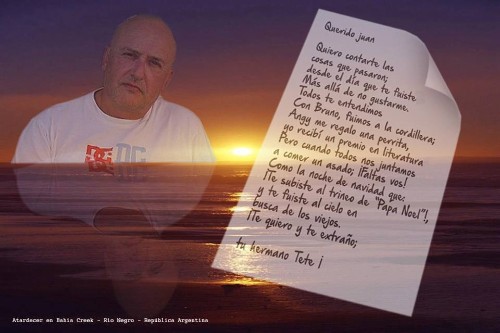 Querido juan
Quiero contarte las
cosas que pasaron;
desde el día que te fuiste
Más allá de no gustarme.
Todos te entendimos
Con Bruno, fuimos a la cordillera;
Angy me regalo una perrita,
yo recibí un premio en literatura
Pero cuando todos nos juntamos
a comer un asado; ¡Faltas vos!
Como la noche de navidad que:
¡Te subiste al trineo de "Papa Noel"!,
y te fuiste al cielo en
busca de los viejos.
¡Te quiero y te extraño;
tu hermano Tete ¡
DC
Atardecer en Bahia Creek - Rio Negro - República Argentina